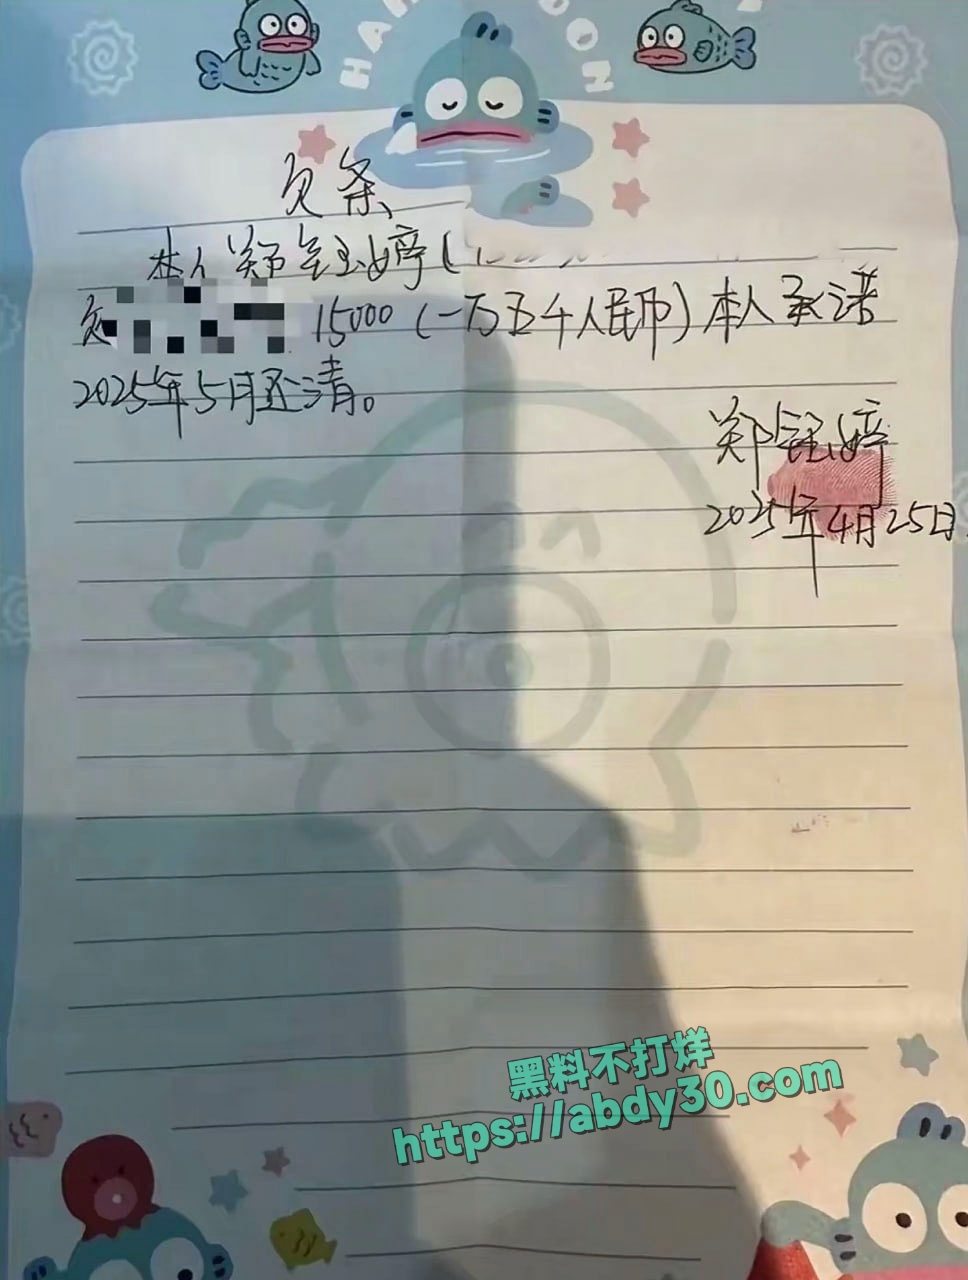 HA OON
欠条
本人郑钰婷(
欠 15000(一万五千人民币)本人承诺
2025年5月还清。
郑钰婷
2025年4月25日
黑料不打烊
https://abdy30.com